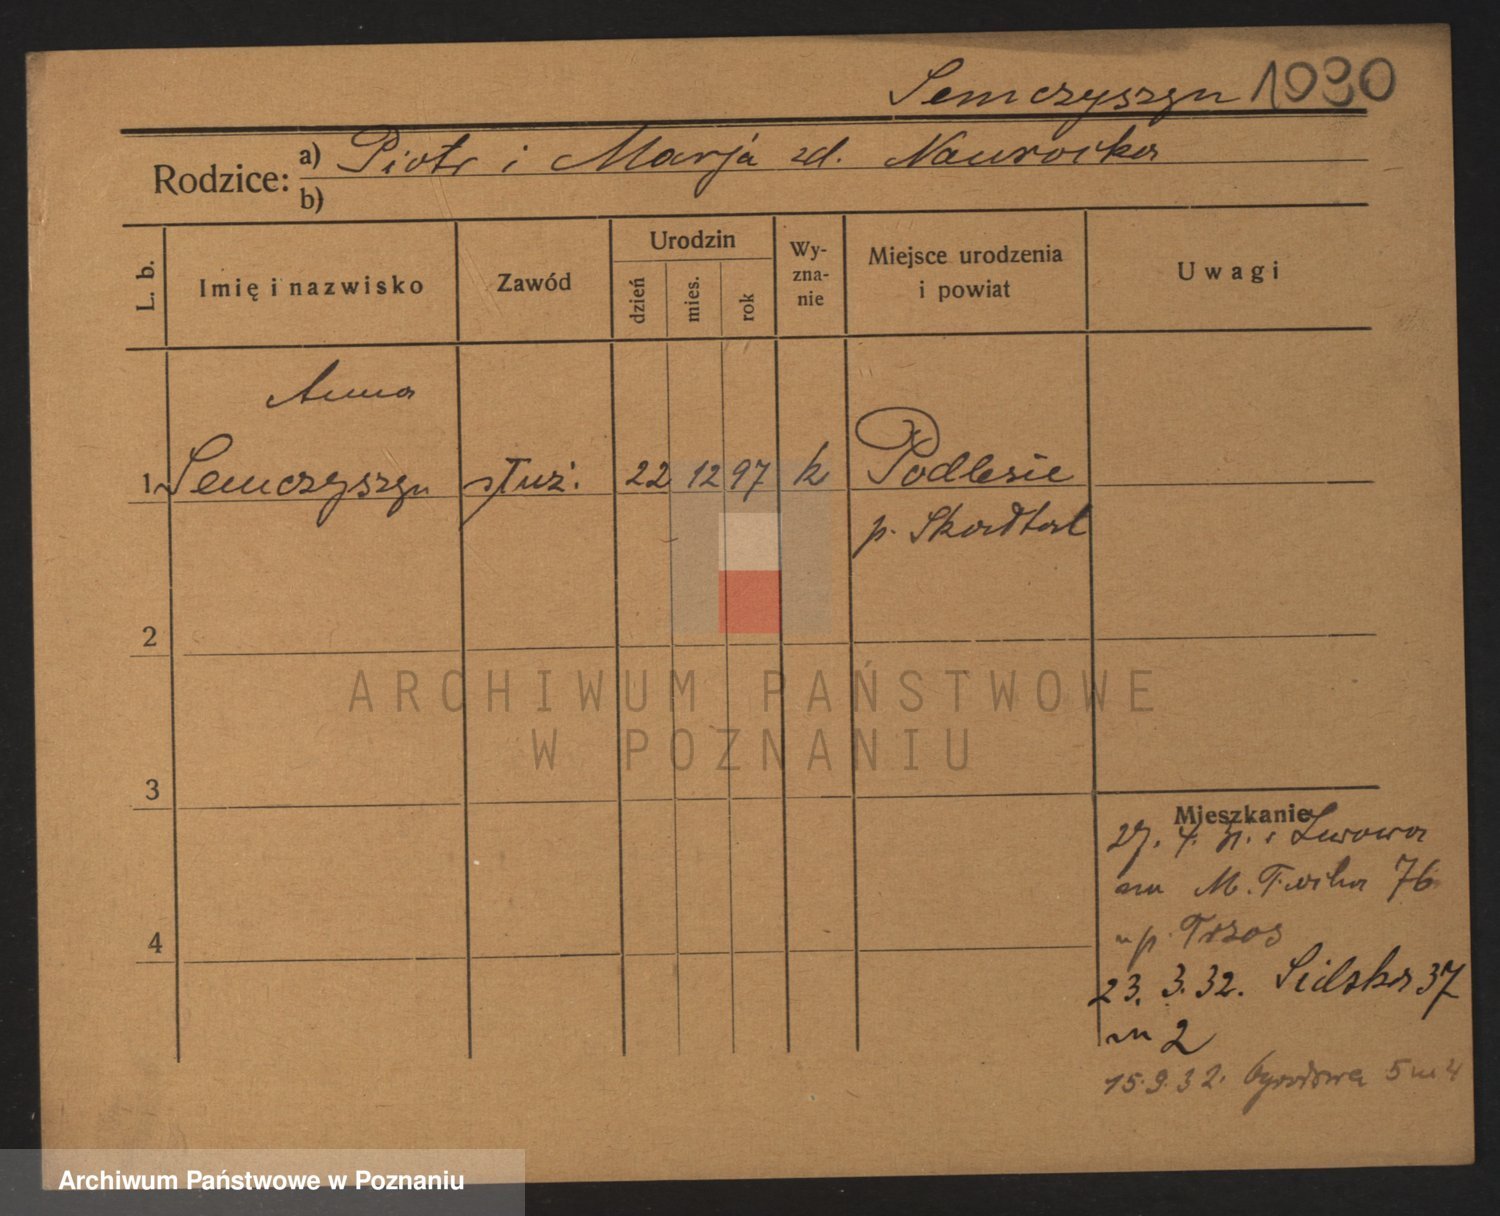 Semczyszyn 1930
Rodzice: a) Piotr i Marja zd. Nawrocka
b)
L. b.
Imię i nazwisko
Zawód
Urodzin
dzień
mies.
rok
Wy-
zna-
nie
Miejsce urodzenia
i powiat
Uwagi
Anna
1 Semczyszyn służ. 22 12 97 k Podlesie
p. Skadtat
2
3
4
Mieszkanie
27. 4. 31. z Lwowa
na M. 76
u p. Trzos
23. 3. 32. 37
m 2
15.9.32. Ogrodowa 5 m 4
ARCHIWUM PAŃSTWOWE
W POZNANIU
Archiwum Państwowe w Poznaniu